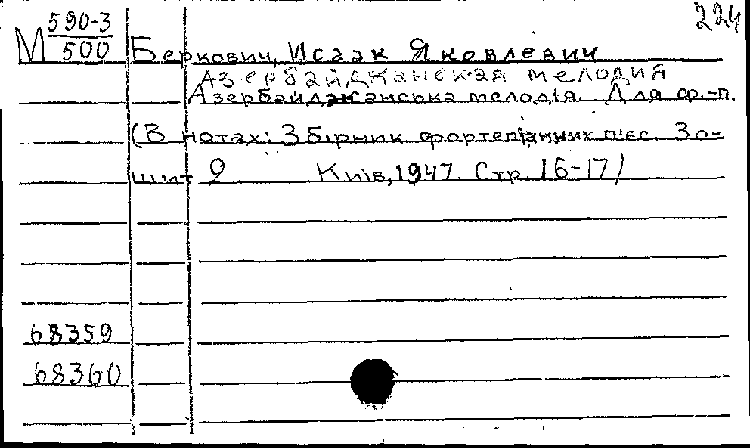 224
М 590-3/500
Беркович, Исаак Яковлевич
Азербайджанская мелодия
Азербайджанська мелодія. Для ф.-п.
(В нотах: Збірник фортепіанних п'єс. Зо-
шит 2 Київ, 1947. Стр. 16-17)
68359
68360